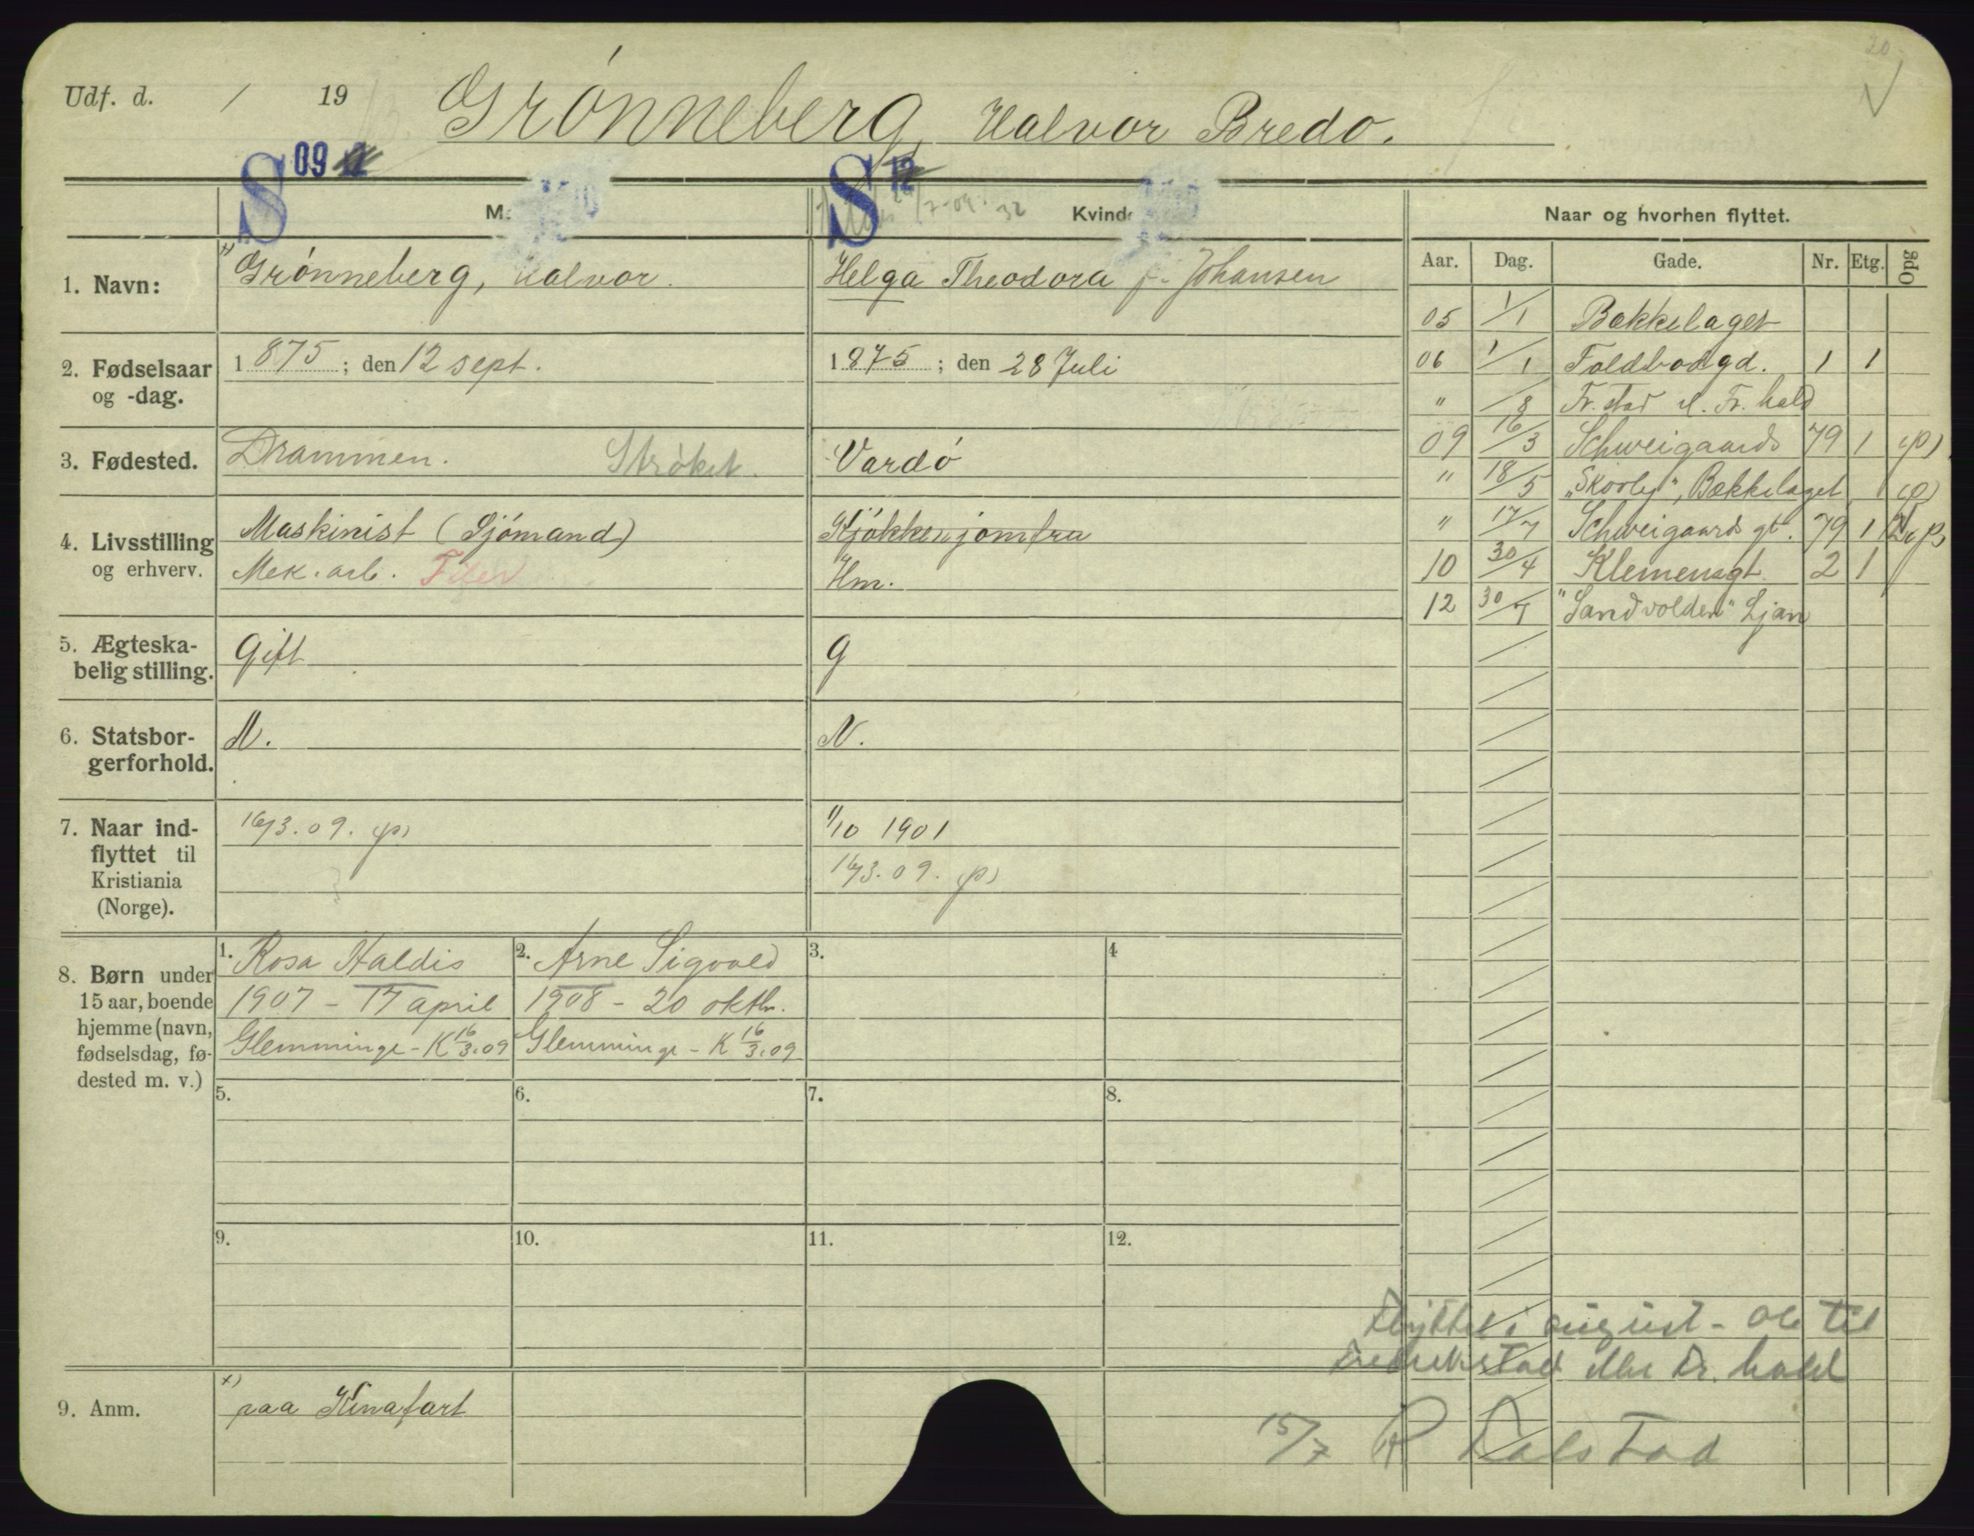 Udf. d. / 19 Grønneberg, Halvor Bredo.
S 09 S 12
Kvinde
Naar og hvorhen flyttet.
Aar. Dag. Gade. Nr. Etg. Opg
1. Navn: x) Grønneberg, Halvor. Helga Theodora f. Johansen
2. Fødselsaar og -dag. 1875; den 12 sept. 1875; den 28 Juli
3. Fødested. Drammen. Strøket. Vardø
4. Livsstilling og erhverv. Maskinist (Sjømand) Kjøkkenjomfru
Mek. arb. Filer Hm.
5. Ægteskabelig stilling. Gift g
6. Statsborgerforhold. N. N.
7. Naar indflyttet til Kristiania (Norge). 16/3. 09. (p) 1/10 1901
16/3. 09. (p)
05 1/1 Bækkelaget
06 1/1 Toldbodgd. 1 1
" /8 Fr.stad el. Fr.hald
09 16/3 Schweigaards 79 1 (p)
" 18/5 "Skovly", Bækkelaget (p)
" 17/7 Schweigaards gt. 79 1
10 30/4 Klemensgt. 2 1
12 30/7 "Sandvolden" Ljan
8. Børn under 15 aar, boende hjemme (navn, fødselsdag, fødested m. v.)
1. Rosa Haldis
1907 - 17 april
Glemminge - K 16/3.09
2. Arne Sigvald
1908 - 20 oktbr.
Glemminge - K 16/3.09
3.
4
5.
6.
7.
8.
9.
10.
11.
12.
Flyttet i august - 06 til
Fredrikstad eller Fr. hald
15/7
9. Anm. x) paa Kinafart